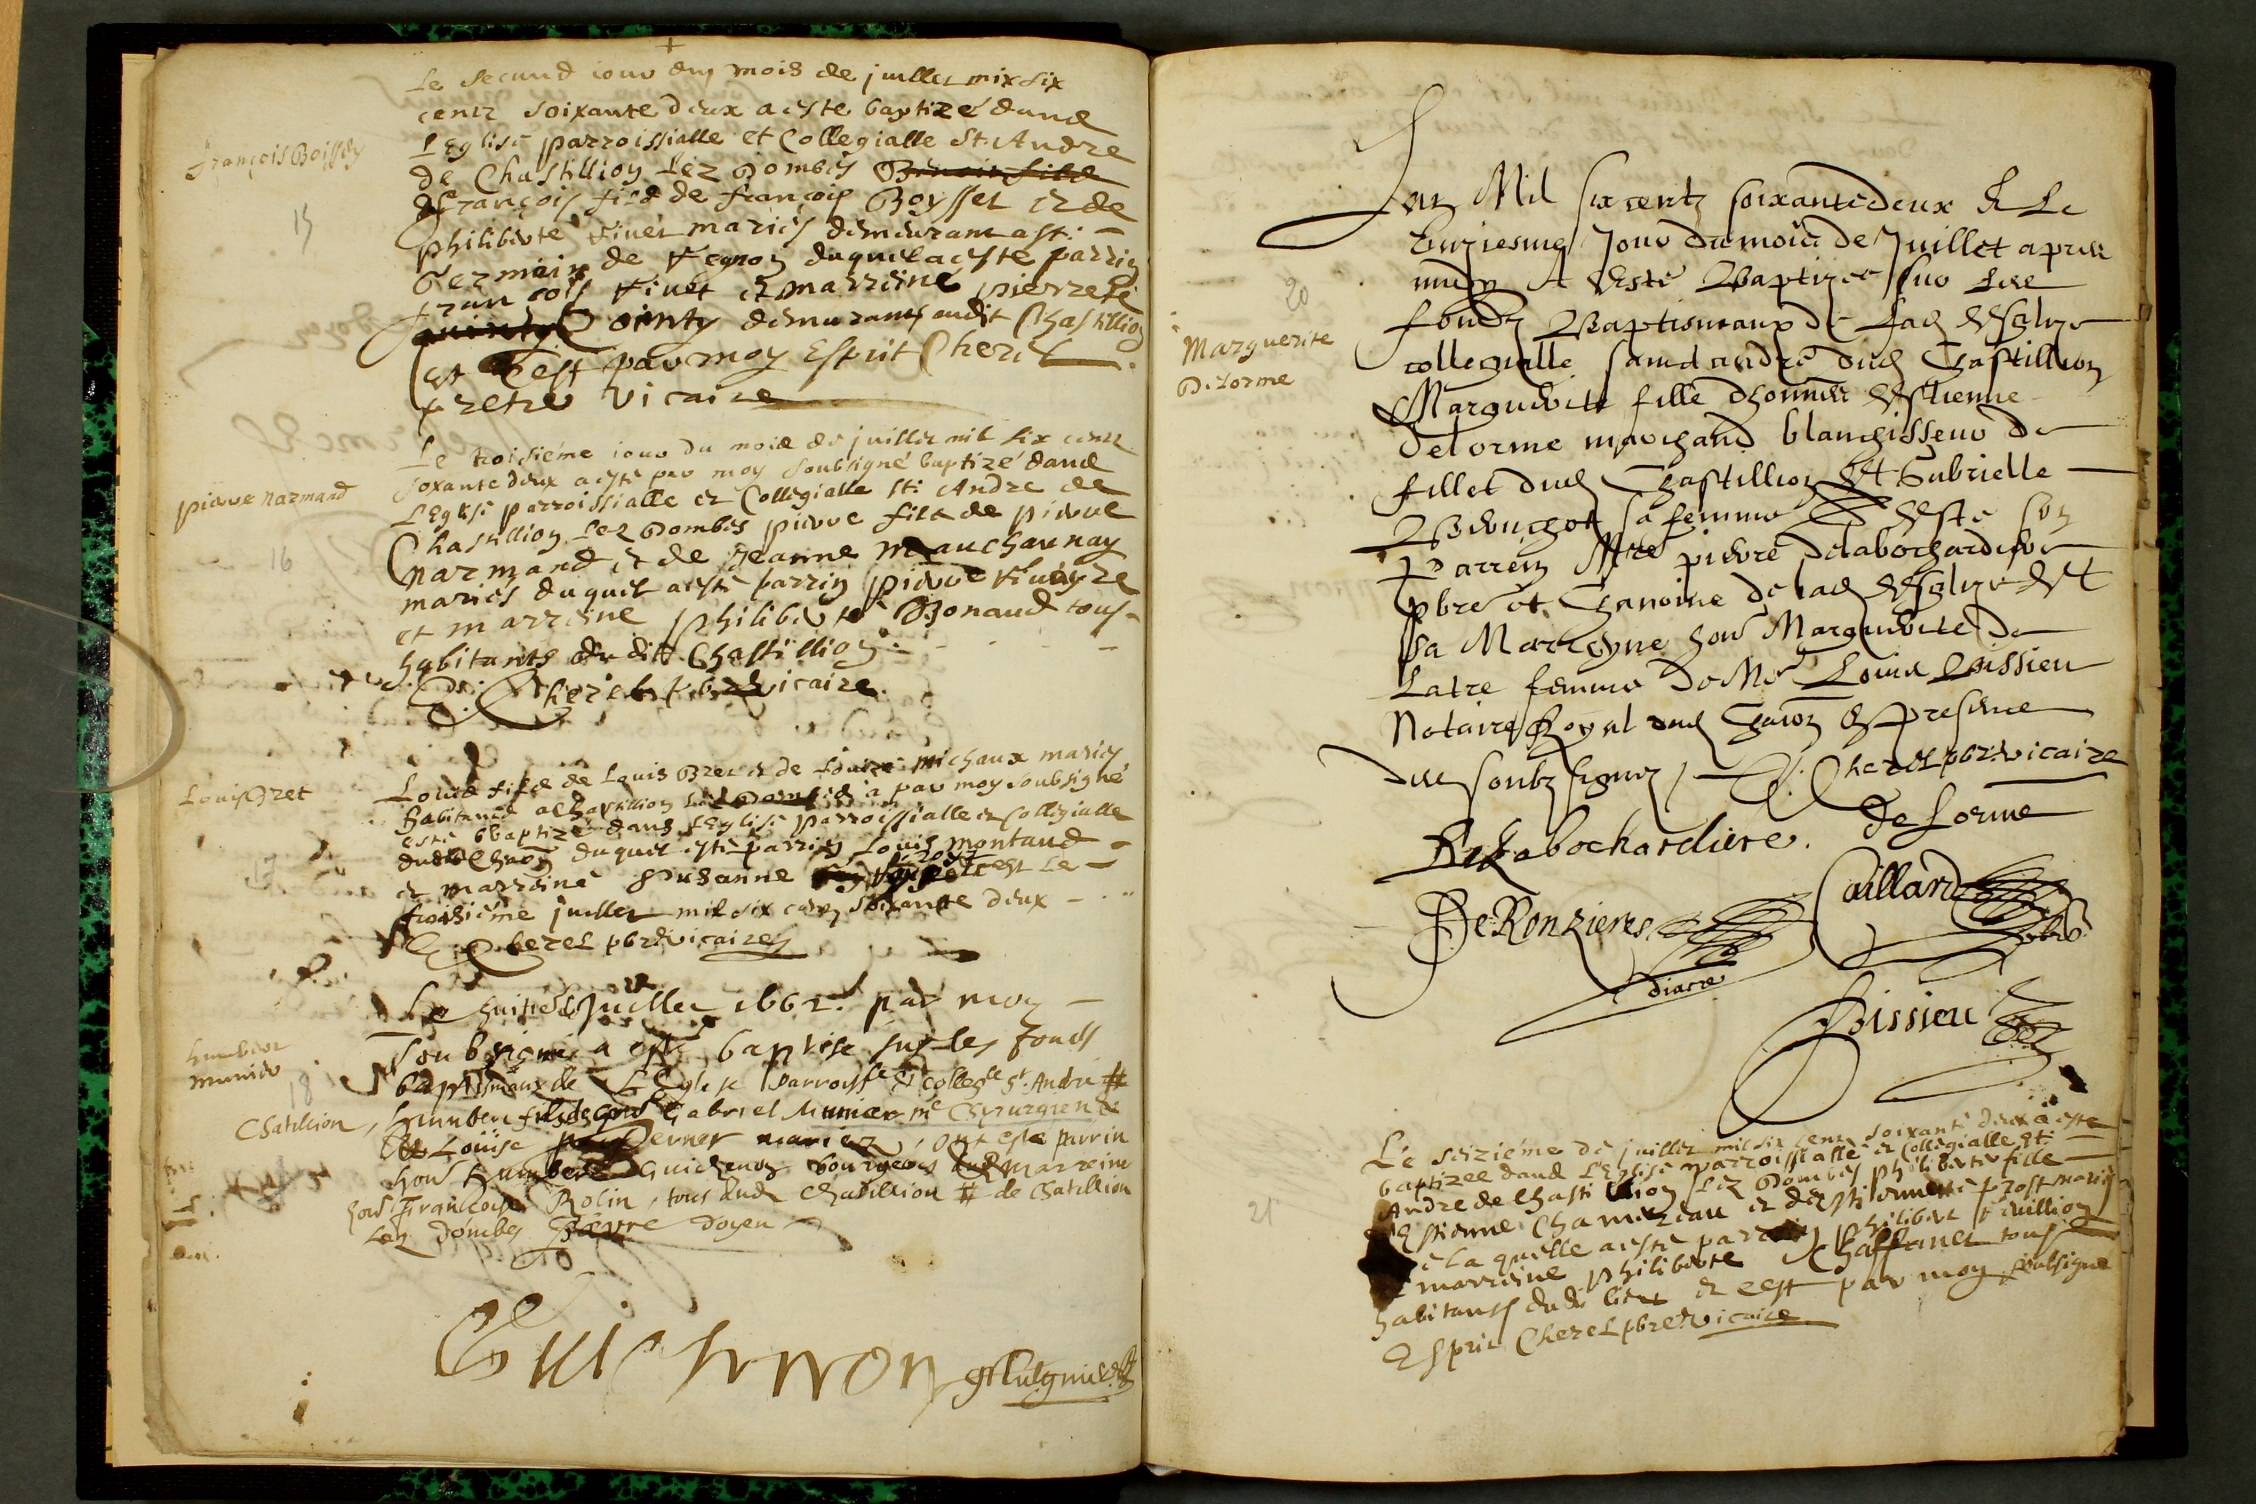 Le second iour du mois de juillet mix six
centz soixante deux a este baptizé dans
L'Eglise parroissialle et Collegialle St. Andre
de Chastillion Lez Dombes Benoist fils
François Boissey
15
François fils de françois Boysset et de
philiberte Vivet mariés demeurant a St.
Germain de Regnon duquel a este parrin
françois Vivet et marrisne pierrete
Cointy demurans audit Chastillion
et c'est par moy Esprit Cherel
pretre vicaire
Le troisiéme iour du mois de juillet mil six centz
soxante deux a esté par moy soubsigné baptizé dans
L'Eglise parroissialle et Collegialle St. Andre de
pierre narmand
16
Chastillion Lez Dombes pierre fils de pierre
narmand et de Jeanne Mauchaunay
mariés duquel a esté parrin pierre
et marrisne philiberte Bonaud tous
habitants du dit Chastillion
Cherel pbre vicaire
Louis Bret
Louis fils de Louis Bret et de Louize michaux mariés
habitans a Chastillion Lez Dombes a par moy soubsigné
esté baptizé dans l'Eglise parroissialle et Collegialle
dudit Chaon duquel esté parrin Louis montaud
et marrisne Suzanne cest Le
troisiéme juillet mil six centz soixante deux
E. Cherel pbre vicaire
Le huitie Juillet 1662. par moy
soubsigné a esté baptise sus les fonds
humber
munier
18
baptismaux de L'Eglise parroissle & collegle St. Andre #
Chatillion
humbert fils de hons Gabriel Munier me Chyrurgien &
de Louise pernet mariez, ont esté parrin
hons humbert Guichenon bourgeois & marreine
hons Françoise Rolin, tous dudt Chatillion # de Chatillion
Lez dombes Favre doyen
Guichenon
L'an Mil six centz soixante deux & Le
unziesme Jour du mois de Juillet apres
midy A Esté Baptizée sur Les
20
fondz Baptismaux de Lad Esglize
Marguerite
Delorme
collegialle sainct andré dud Chastillion
Marguerite fille d'honner Estienne
delorme marchand blanchisseur de
fillet dud Chastillion Et Gabrielle
Brunchot sa femme Et Esté son
Parrein Mre pierre delabochardiere
pbre et chanoine de lad Esglize Et
sa Marreyne hons Marguerite de
Latre femme de Me Louis Bissieu
Notaire Royal dud Chaon Es presence
des soubz signez E. Cherel pbr. vicaire
De Labochardiere. delorme
De Ronzieres Caillard
diacre pbre
Bissieu
Le seiziéme de juillet mil six centz soixante deux a este
baptizee dans L'Eglise parroissialle et Collegialle St.
Andre de Chastillion Lez Dombes philiberte fille
21
d'Estienne Chamereau et d'Estiennette prost mariés
de la quelle a esté parrin philibert Fuillion
et marrisne philiberte Chaffanet tous
habitans dudt lieu et cest par moy soubsigne
Esprit Cherel pbre vicaire